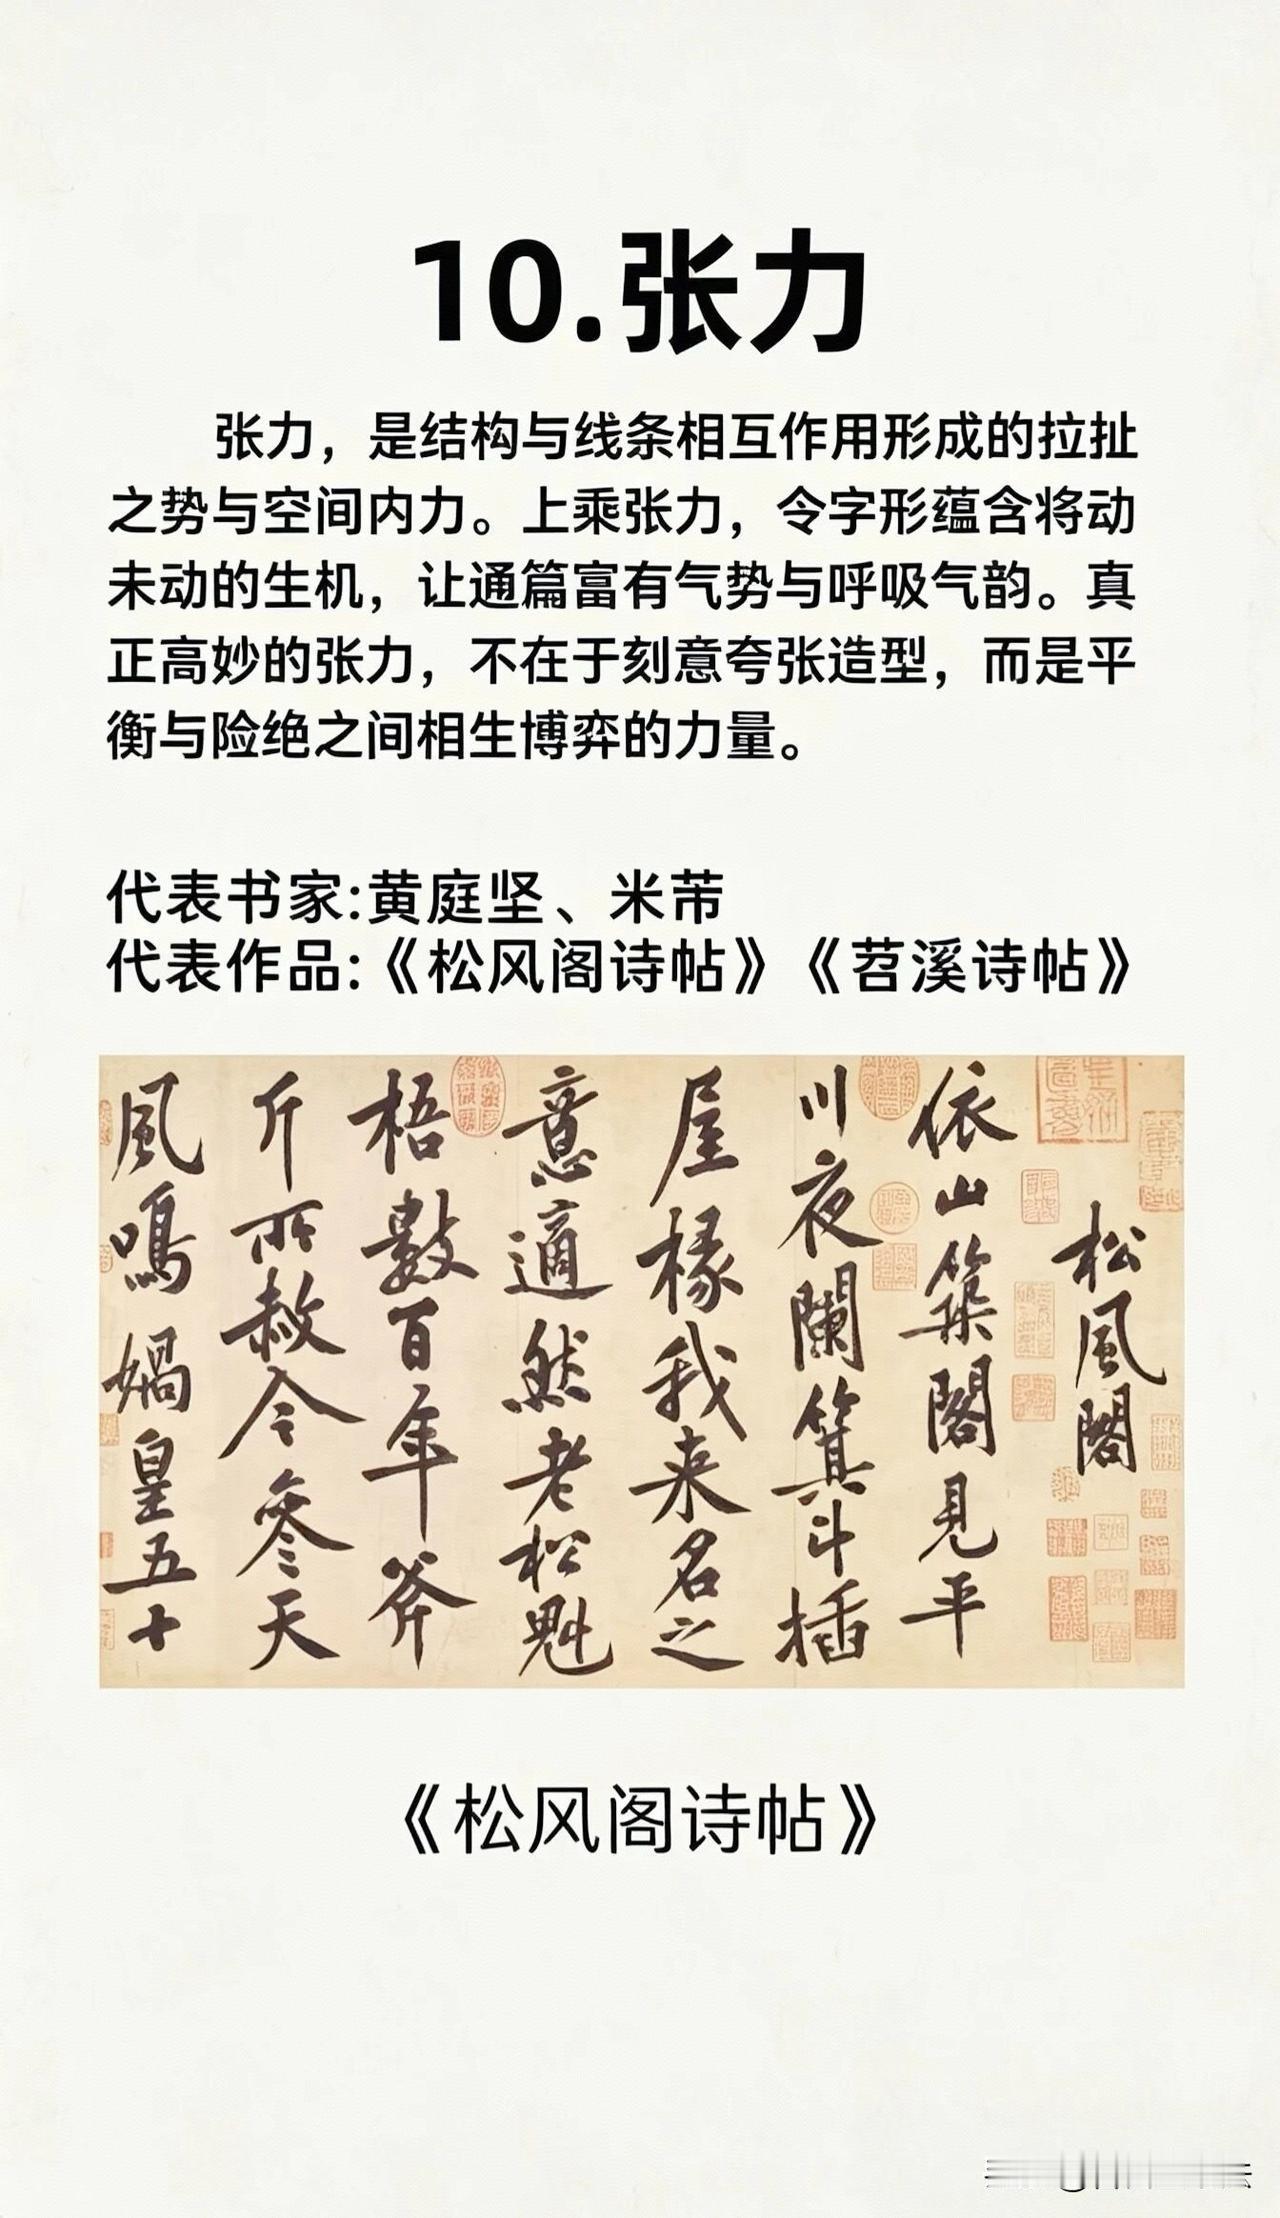 10.张力
张力，是结构与线条相互作用形成的拉扯
之势与空间内力。上乘张力，令字形蕴含将动
未动的生机，让通篇富有气势与呼吸气韵。真
正高妙的张力，不在于刻意夸张造型，而是平
衡与险绝之间相生博弈的力量。
代表书家:黄庭坚、米芾
代表作品:《松风阁诗帖》《苕溪诗帖》
松風閣
依山築閣見平
川夜闌箕斗插
屋椽我来名之
意適然老松魁
梧數百年斧
斤所赦今參天
風鳴媧皇五十
《松风阁诗帖》